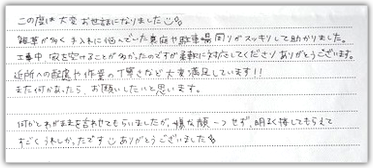 この度は大変お世話になりました
雑草が多く手入れに悩んでいた裏庭や駐車場周りがスッキリして助かりました。
工事中家を空けることが多かったのですが柔軟に対応してくださりありがとうございます。
近所への配慮や作業の丁寧さなど大変満足しています!!
また何かあったら、お願いしたいと思います。
何かとわがままを言わせてもらいましたが、嫌な顔一つせず、明るく接してもらえて
すごくうれしかったです ありがとうございました